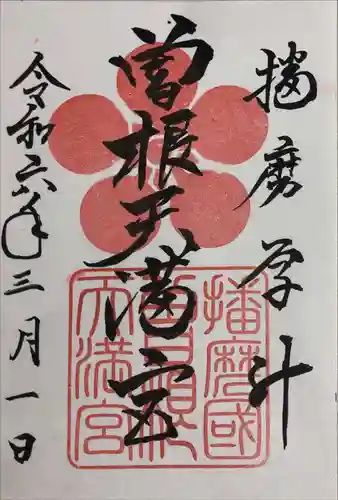 播磨国
曽根天満宮
令和六年三月一日
播磨國
曽根
天満宮